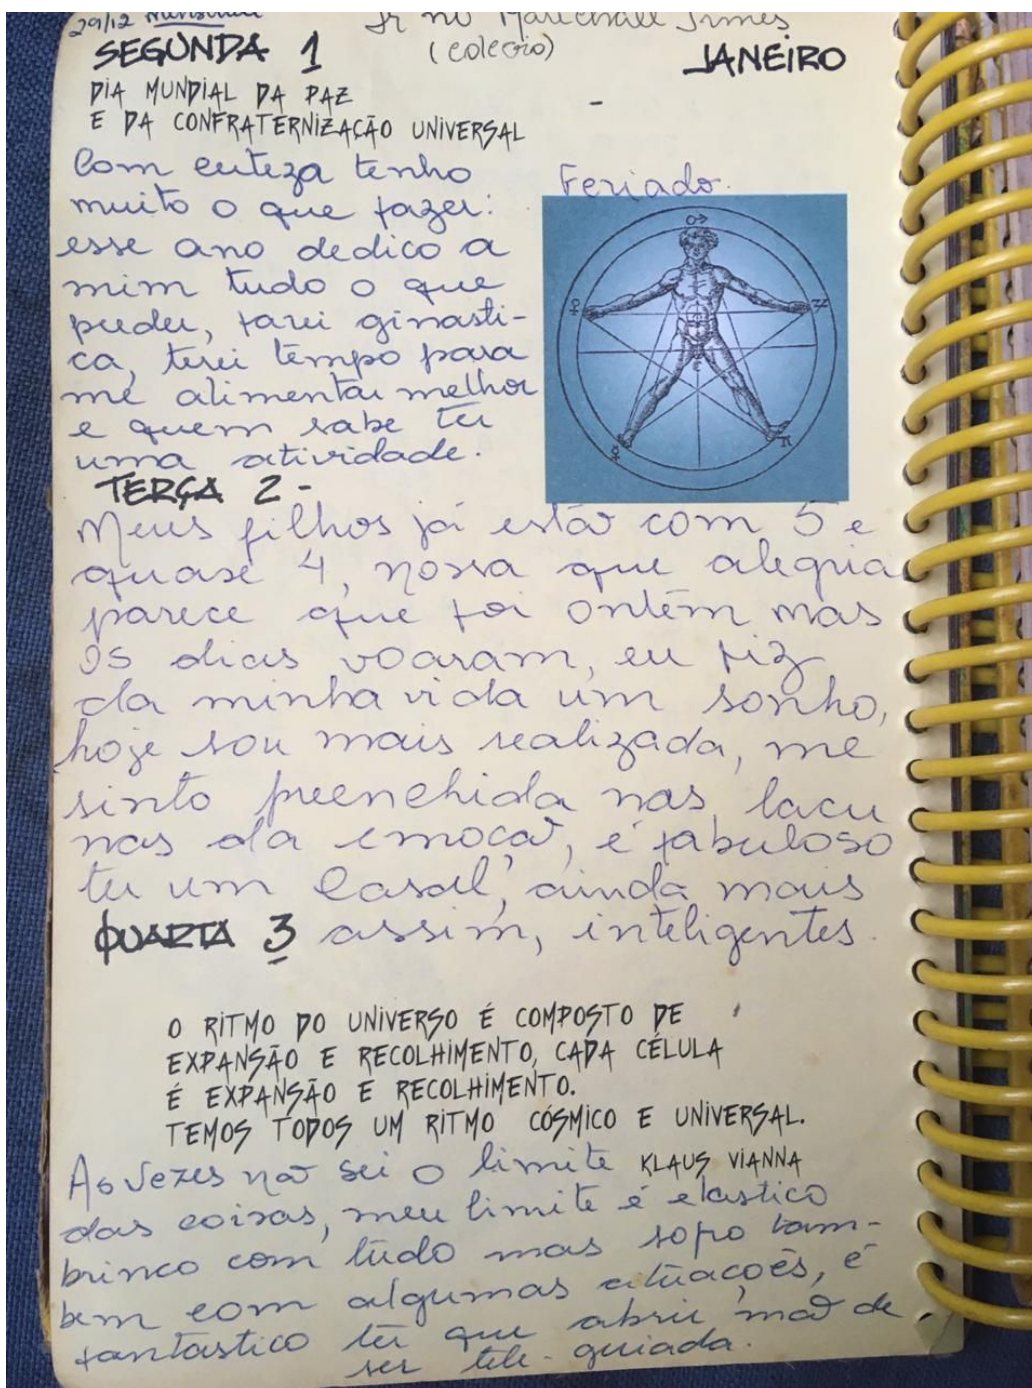 29/12
Ir no Marechall
SEGUNDA 1
(colegio)
JANEIRO
DIA MUNDIAL DA PAZ
E DA CONFRATERNIZAÇÃO UNIVERSAL
Com certeza tenho
Feriado.
muito o que fazer:
esse ano dedico a
mim tudo o que
puder, farei ginasti-
ca, terei tempo para
me alimentar melhor
e quem sabe ter
uma atividade.
TERÇA 2 -
Meus filhos já estão com 5 e
quase 4, nossa que alegria
parece que foi ontem mas
os dias voaram, eu fiz
da minha vida um sonho,
hoje sou mais realizada, me
sinto preenchida nas lacu
nas da emoção, é fabuloso
ter um casal, ainda mais
QUARTA 3 assim, inteligentes.
O RITMO DO UNIVERSO É COMPOSTO DE
EXPANSÃO E RECOLHIMENTO, CADA CÉLULA
É EXPANSÃO E RECOLHIMENTO.
TEMOS TODOS UM RITMO CÓSMICO E UNIVERSAL.
KLAUS VIANNA
As vezes não sei o limite
das coisas, meu limite é elastico
brinco com tudo mas sofro tam-
bem com algumas situações, é
fantastico ter que abrir mão de
ser tele-guiada.